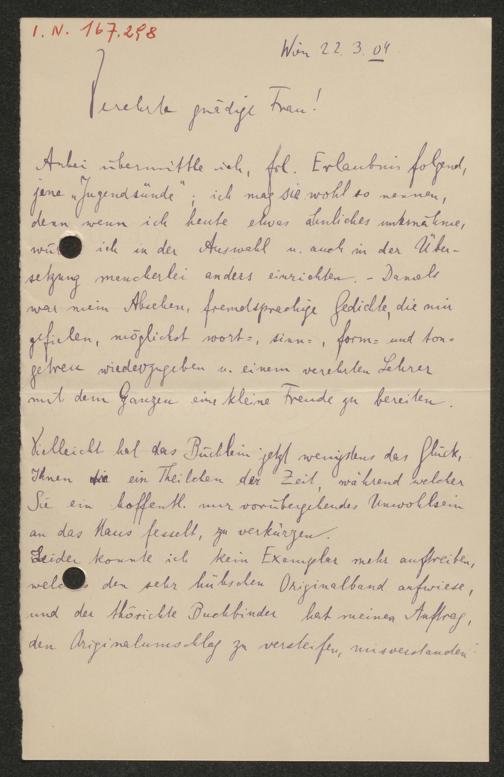 I. N. 167.298
Wien 22. 3. 04
Verehrte gnädige Frau!
Anbei übermittle ich, frl. Erlaubnis folgend,
jene „Jugendsünde“; ich mag sie wohl so nennen,
denn wenn ich heute etwas ähnliches unternähme,
würde ich in der Auswahl u. auch in der Über-
setzung mancherlei anders einrichten. – Damals
war mein Absehen, fremdsprachige Gedichte, die mir
gefielen, möglichst wort-, sinn-, form- und ton-
getreu wiederzugeben u. einem verehrten Lehrer
mit dem Ganzen eine kleine Freude zu bereiten.
Vielleicht hat das Büchlein jetzt wenigstens das Glück,
Ihnen ein Theilchen der Zeit, während welcher
Sie ein hoffentl. nur vorübergehendes Unwohlsein
an das Haus fesselt, zu verkürzen.
Leider konnte ich kein Exemplar mehr auftreiben,
welches den sehr hübschen Originalband aufwiese,
und der thörichte Buchbinder hat meinen Auftrag,
den Originalumschlag zu versteifen, missverstanden